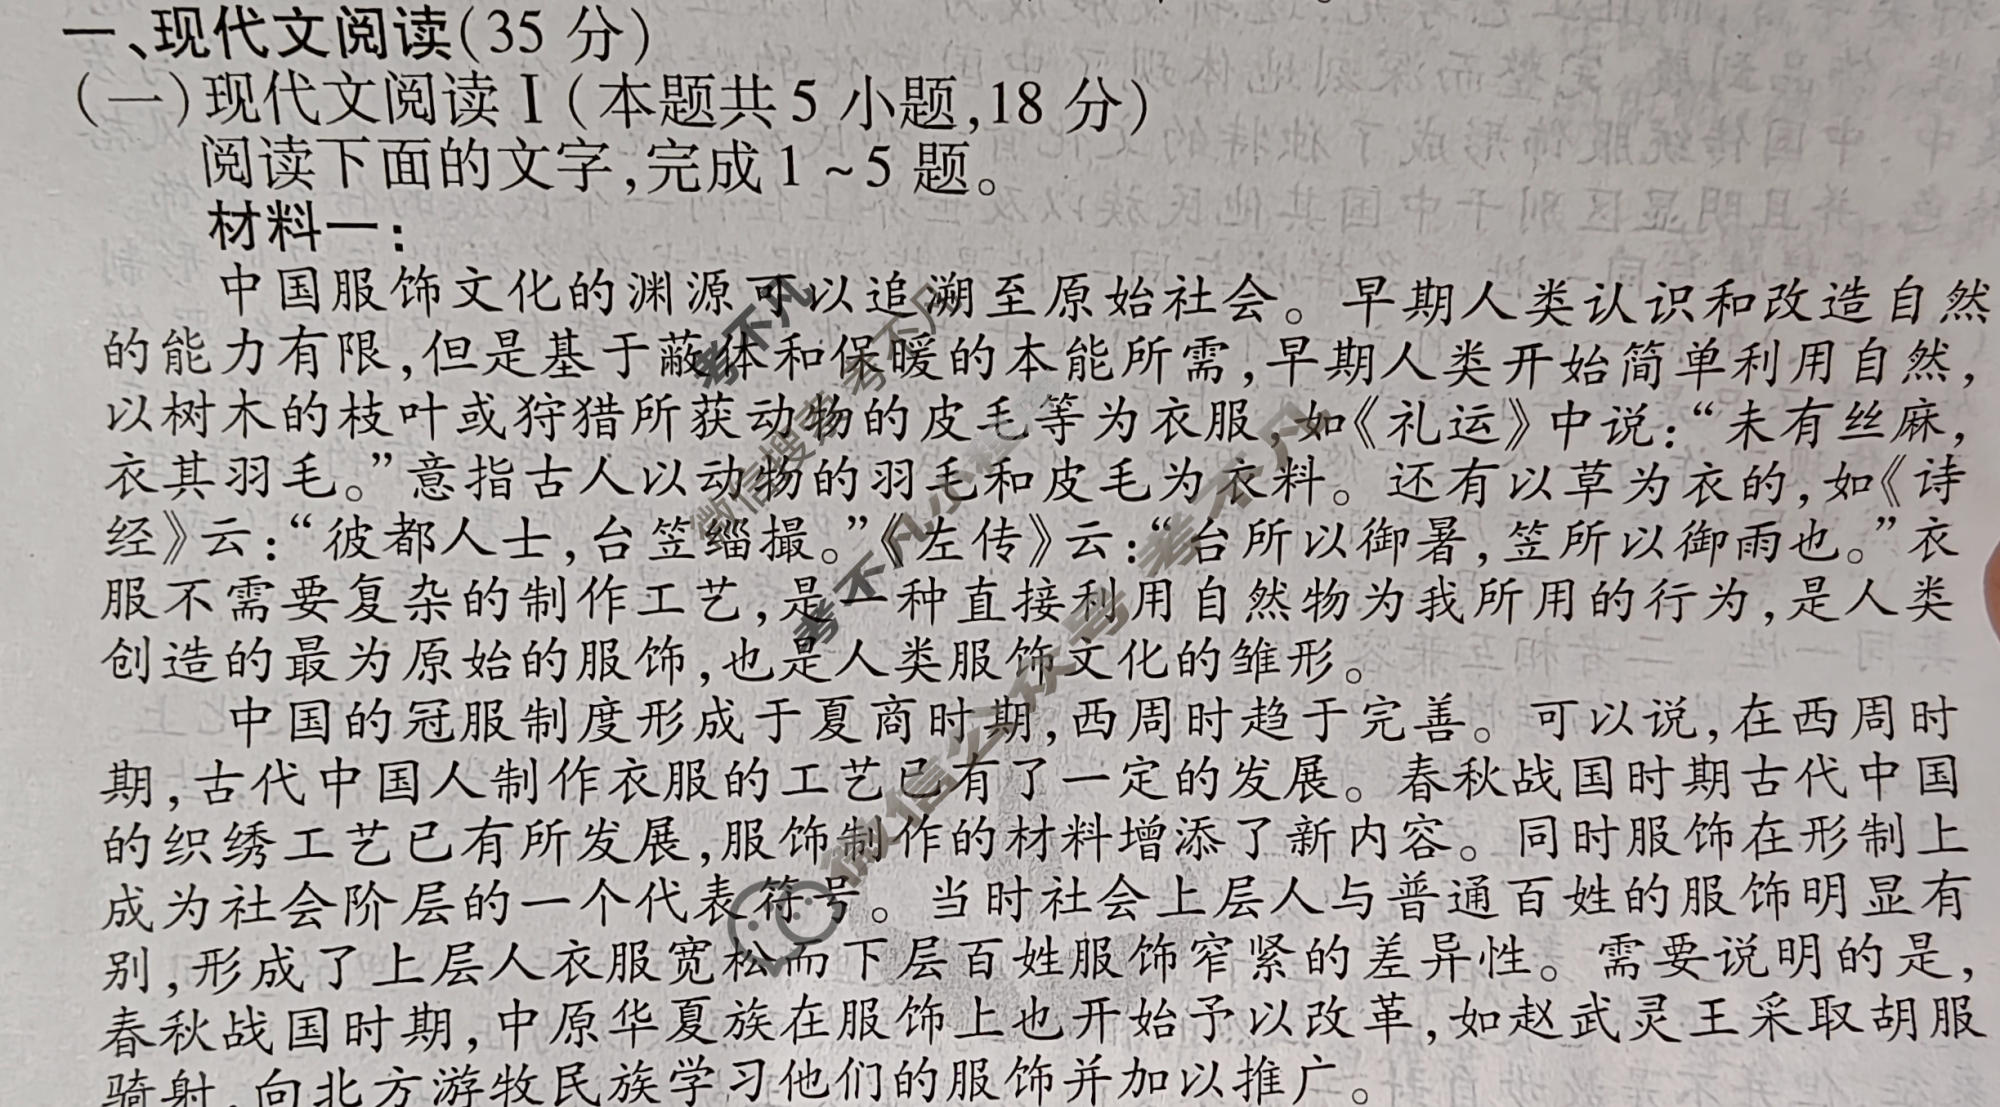 一、现代文阅读(35 分)
(一)现代文阅读Ⅰ(本题共5 小题,18 分)
阅读下面的文字,完成1~5 题。
材料一:
中国服饰文化的渊源可以追溯至原始社会。早期人类认识和改造自然
的能力有限,但是基于蔽体和保暖的本能所需,早期人类开始简单利用自然,
以树木的枝叶或狩猎所获动物的皮毛等为衣服,如《礼运》中说:“未有丝麻,
衣其羽毛。”意指古人以动物的羽毛和皮毛为衣料。还有以草为衣的,如《诗
经》云:“彼都人士,台笠缁撮。”《左传》云:“台所以御暑,笠所以御雨也。”衣
服不需要复杂的制作工艺,是一种直接利用自然物为我所用的行为,是人类
创造的最为原始的服饰,也是人类服饰文化的雏形。
中国的冠服制度形成于夏商时期,西周时趋于完善。可以说,在西周时
期,古代中国人制作衣服的工艺已有了一定的发展。春秋战国时期古代中国
的织绣工艺已有所发展,服饰制作的材料增添了新内容。同时服饰在形制上
成为社会阶层的一个代表符号。当时社会上层人与普通百姓的服饰明显有
别,形成了上层人衣服宽松而下层百姓服饰窄紧的差异性。需要说明的是,
春秋战国时期,中原华夏族在服饰上也开始予以改革,如赵武灵王采取胡服
骑射,向北方游牧民族学习他们的服饰并加以推广。
考不凡
微信搜考不凡
考不凡小程序
微信公众号 考不凡